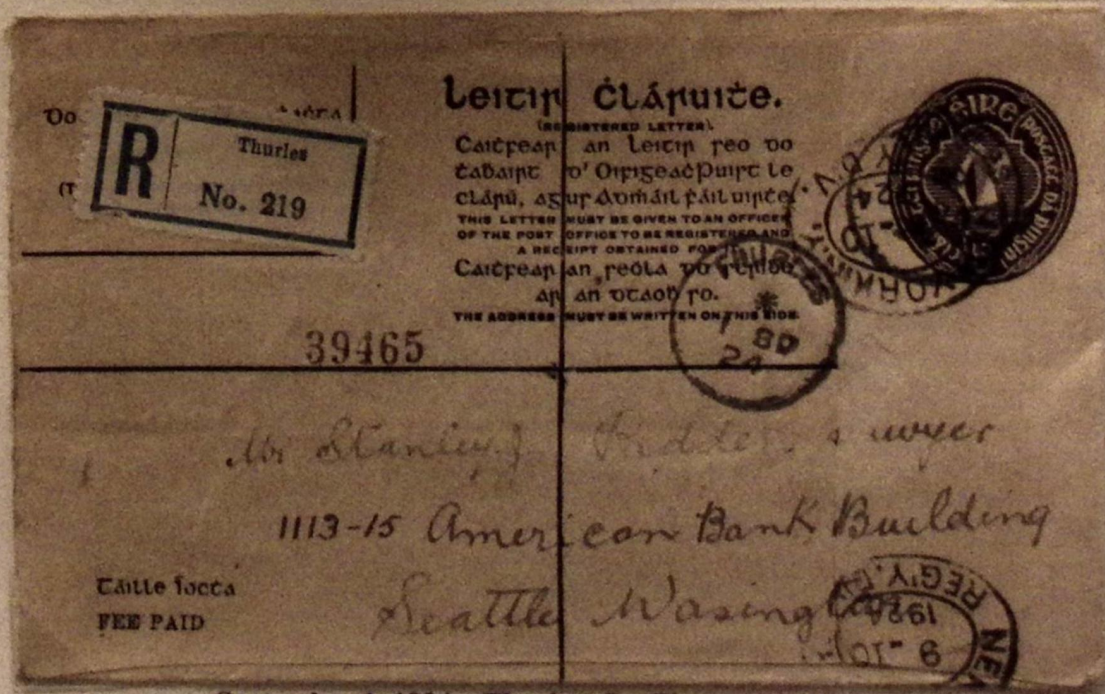 Leitir Ċláruiṫe.
(REGISTERED LETTER).
Caiṫfear an leitir seo do
ṫaḃairt d' Oifigeaċ Puirt le
clárú, agus admáil fáil uirṫe.
THIS LETTER MUST BE GIVEN TO AN OFFICER
OF THE POST OFFICE TO BE REGISTERED AND
A RECEIPT OBTAINED FOR IT.
Caiṫfear an seóla do scríoḃ
ar an dtaoḃ so.
THE ADDRESS MUST BE WRITTEN ON THIS SIDE.
Do
R
Thurles
No. 219
ÉIRE
POSTAGE
Thurles
1 
24
39465
Mr Stanley J
1113-15 American Bank Building
Seattle Wasington
Táille íocṫa
FEE PAID
REG'Y.
1924
9 - 10
NEW